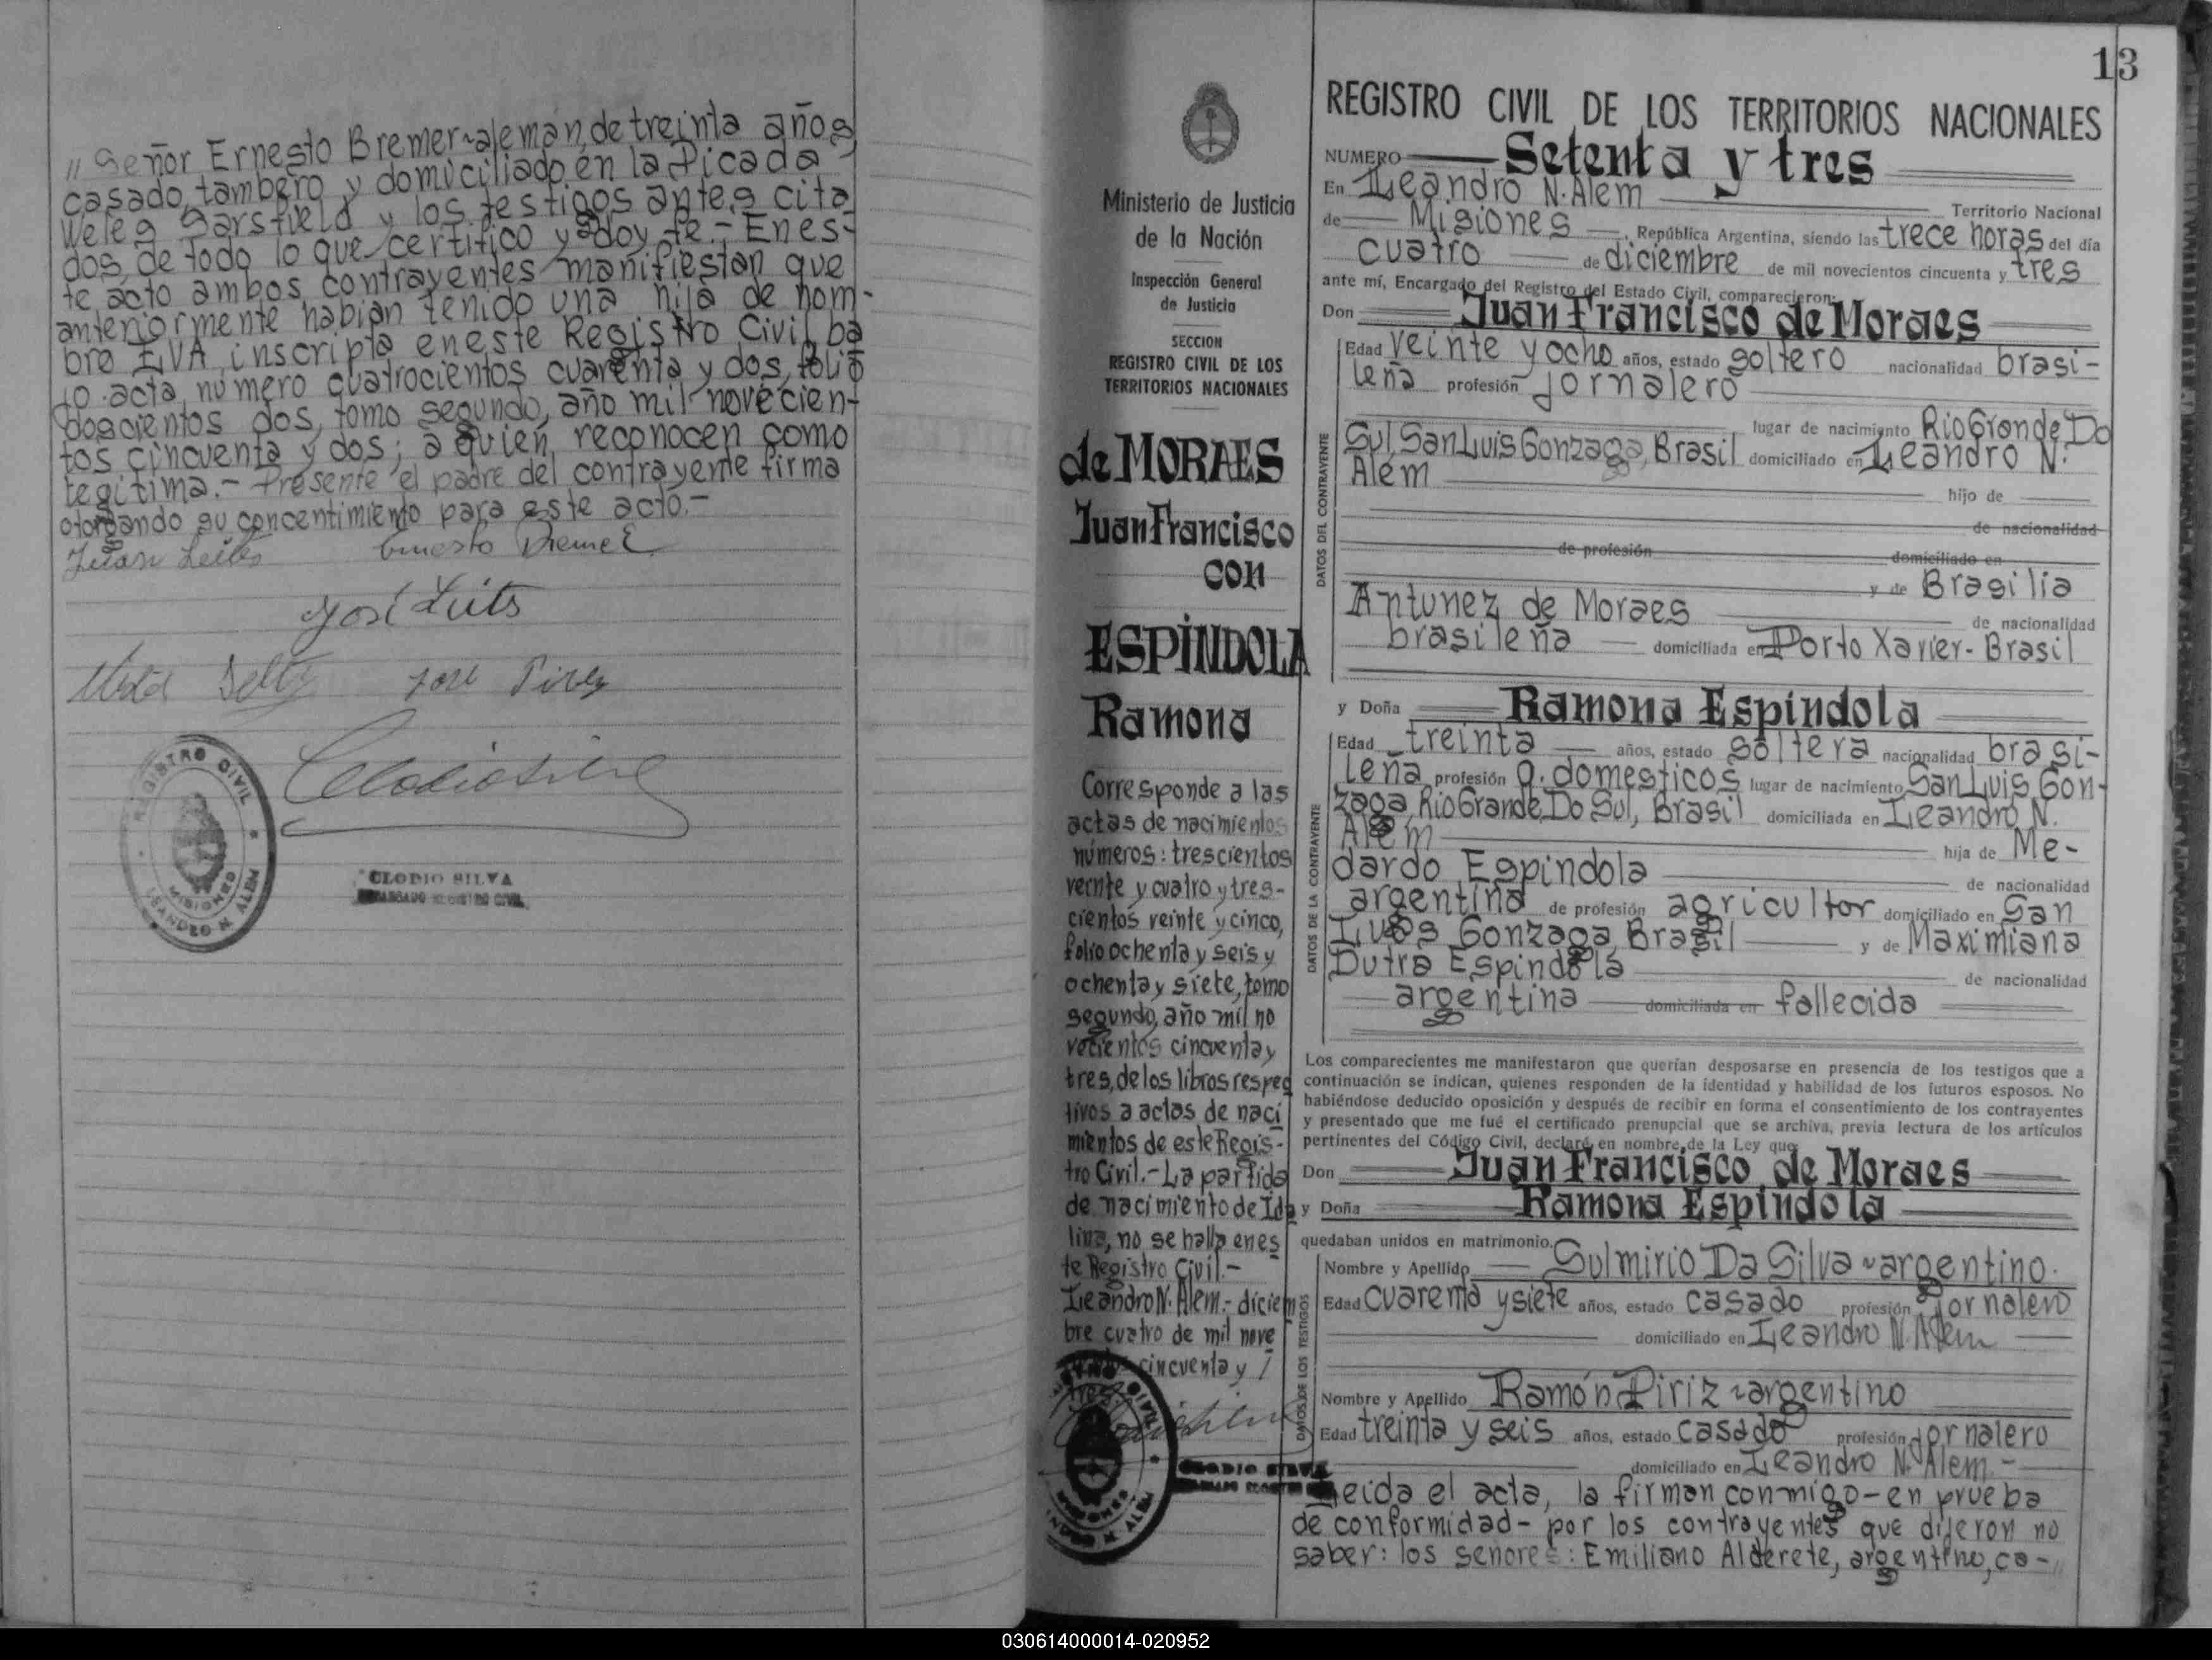 " Señor Ernesto Bremer~aleman, de treinta años
casado, tambero y domiciliado en la Picada
Veles Sarsfield y los testigos antes cita
dos, de todo lo que certifico y doy fe.- En es-
te acto ambos contrayentes manifiestan que
anteriormente habian tenido una hija de nom-
bre EVA, inscripta en este Registro Civil ba
jo acta número cuatrocientos cuarenta y dos, folio
doscientos dos, tomo segundo, año mil novecien-
tos cincuenta y dos; a quien reconocen como
legitima.- Presente el padre del contrayente firma
otorgando su concentimiento para este acto.-
Ernesto Bremer
REGISTRO CIVIL
MISIONES
LEANDRO N. ALEM
CLODIO SILVA
ENCARGADO REGISTRO CIVIL
13
Ministerio de Justicia
de la Nación
Inspección General
de Justicia
SECCION
REGISTRO CIVIL DE LOS
TERRITORIOS NACIONALES
de MORAES
Juan Francisco
con
ESPÍNDOLA
Ramona
Corresponde a las
actas de nacimientos
números: trescientos
veinte y cuatro y tres-
cientos veinte y cinco,
folio ochenta y seis y
ochenta y siete, tomo
segundo, año mil no
vecientos cincuenta y
tres, de los libros respec
tivos a actas de naci
mientos de este Regis-
tro Civil.- La partida
de nacimiento de Ida
lina, no se halla en es
te Registro Civil.-
Leandro N. Alem.- diciem
bre cuatro de mil nove
cincuenta y
tres
CLODIO SILVA
REGISTRO CIVIL DE LOS TERRITORIOS NACIONALES
NUMERO Setenta y tres
En Leandro N. Alem Territorio Nacional
de Misiones, República Argentina, siendo las trece horas del día
cuatro de diciembre de mil novecientos cincuenta y tres
ante mí, Encargado del Registro del Estado Civil, comparecieron:
Don Juan Francisco de Moraes
DATOS DEL CONTRAYENTE
Edad veinte y ocho años, estado soltero nacionalidad brasi-
leña profesión jornalero
lugar de nacimiento Rio Grande Do
Sul, San Luis Gonzaga, Brasil domiciliado en Leandro N.
Alem hijo de
de nacionalidad
de profesión domiciliado en
y de Brasilia
Antunez de Moraes de nacionalidad
brasileña domiciliada en Porto Xavier- Brasil
y Doña Ramona Espindola
DATOS DE LA CONTRAYENTE
Edad treinta años, estado soltera nacionalidad brasi-
leña profesión q. domesticos lugar de nacimiento San Luis Gon-
zaga, Rio Grande Do Sul, Brasil domiciliada en Leandro N.
Alem hija de Me-
dardo Espindola de nacionalidad
argentina de profesión agricultor domiciliado en San
Luis Gonzaga, Brasil y de Maximiana
Dutra Espindola de nacionalidad
argentina domiciliada en fallecida
Los comparecientes me manifestaron que querían desposarse en presencia de los testigos que a
continuación se indican, quienes responden de la identidad y habilidad de los futuros esposos. No
habiéndose deducido oposición y después de recibir en forma el consentimiento de los contrayentes
y presentado que me fué el certificado prenupcial que se archiva, previa lectura de los artículos
pertinentes del Código Civil, declaré en nombre de la Ley que
Don Juan Francisco de Moraes
y Doña Ramona Espindola
quedaban unidos en matrimonio.
DATOS DE LOS TESTIGOS
Nombre y Apellido Sulmirio Da Silva ~ argentino.
Edad cuarenta y siete años, estado casado profesión jornalero
domiciliado en Leandro N. Alem
Nombre y Apellido Ramón Piriz ~ argentino
Edad treinta y seis años, estado casado profesión jornalero
domiciliado en Leandro N. Alem.-
Leida el acta, la firman conmigo-en prueba
de conformidad- por los contrayentes que dijeron no
saber: los señores: Emiliano Alderete, argentino, ca- "
030614000014-020952